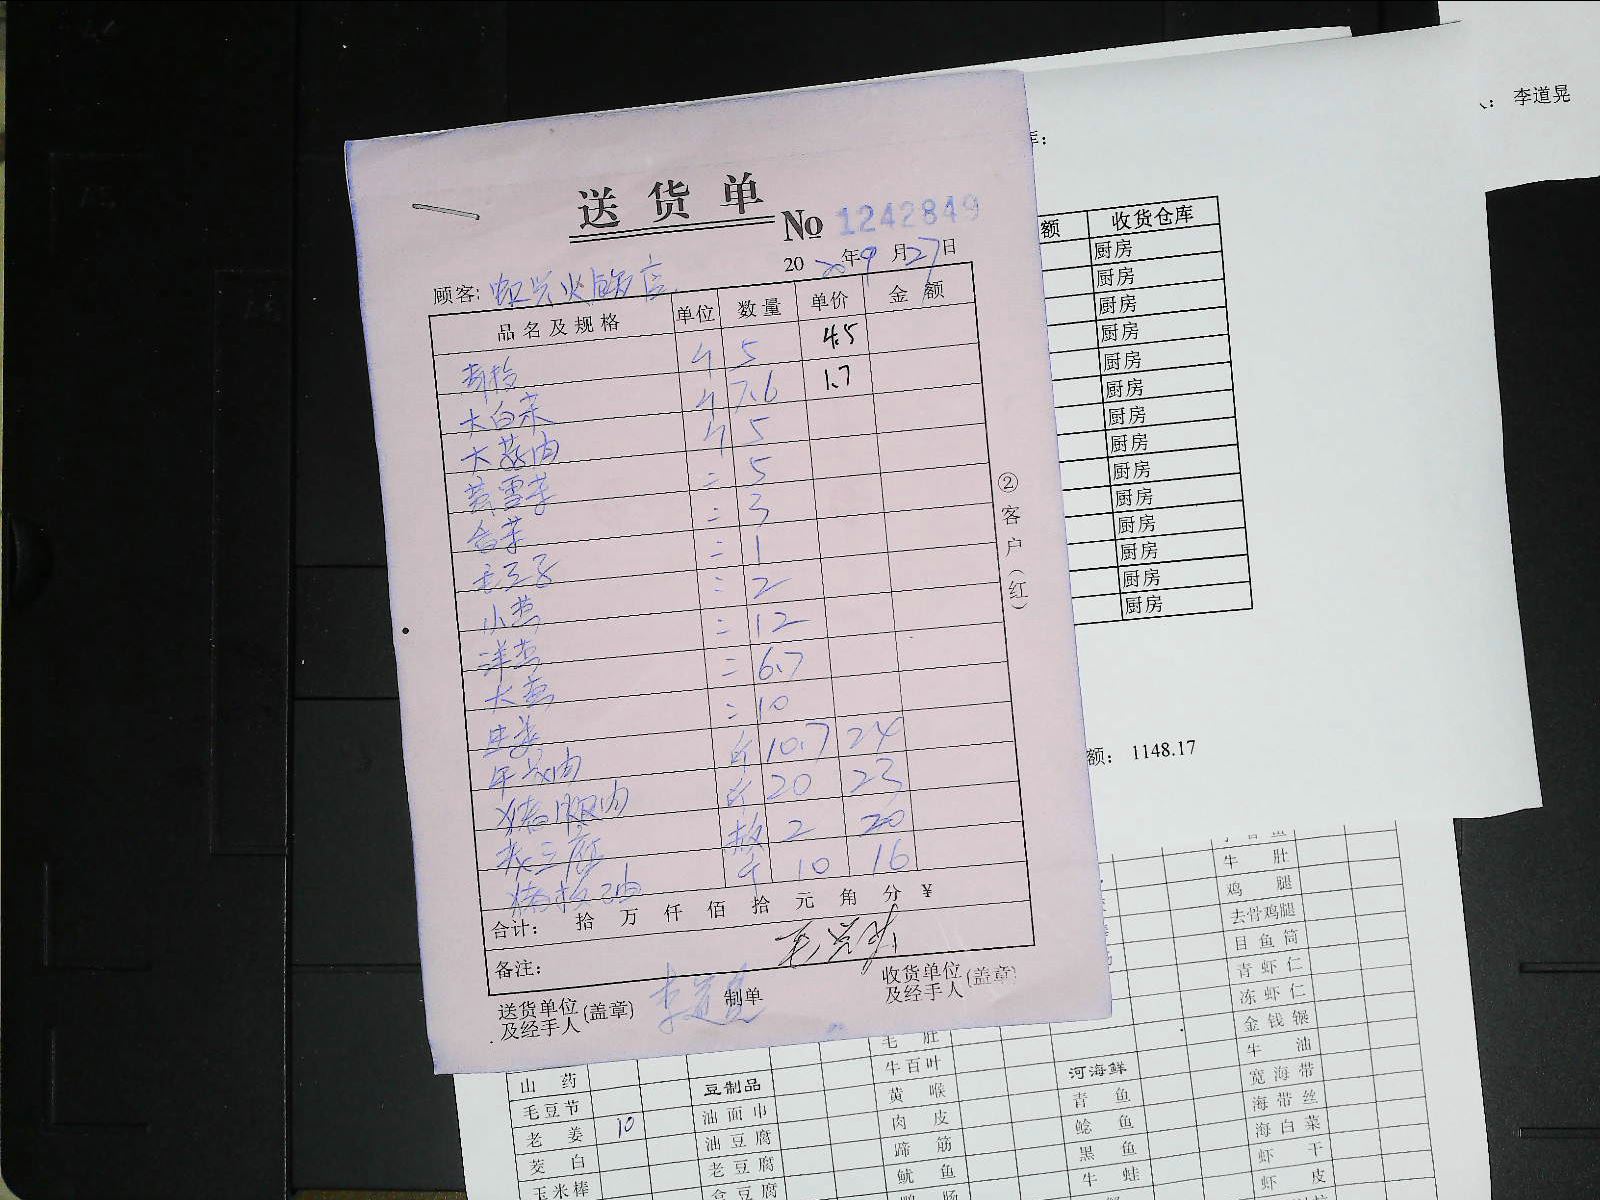 送货单
No 1242849
2020年9月27日
顾客:
品名及规格 单位 数量 单价 金额
青椒 斤 5 4.5
大白菜 斤 7.6 1.7
斤 5
= 5
= 3
= 1
小葱 = 2
洋葱 = 12
大葱 = 6.7
生姜 = 10
斤 10.7 24
斤 20 23
2 20
猪板油 斤 10 16
合计: 拾 万 仟 佰 拾 元 角 分 ¥
备注:
送货单位及经手人(盖章) 李道晃 制单 收货单位及经手人(盖章)
②客户(红)
李道晃
库:
额 收货仓库
厨房
厨房
厨房
厨房
厨房
厨房
厨房
厨房
厨房
厨房
厨房
厨房
厨房
厨房
额: 1148.17
牛肚
鸡腿
去骨鸡腿
目鱼筒
青虾仁
冻虾仁
金钱辗
毛肚 牛油
山药 豆制品 牛百叶 河海鲜 宽海带
毛豆节 油面巾 黄喉 青鱼 海带丝
老姜 10 油豆腐 肉皮 鲶鱼 海白菜
茭白 老豆腐 蹄筋 黑鱼 虾干
玉米棒 盒豆腐 鱿鱼 牛蛙 虾皮
鸭肠